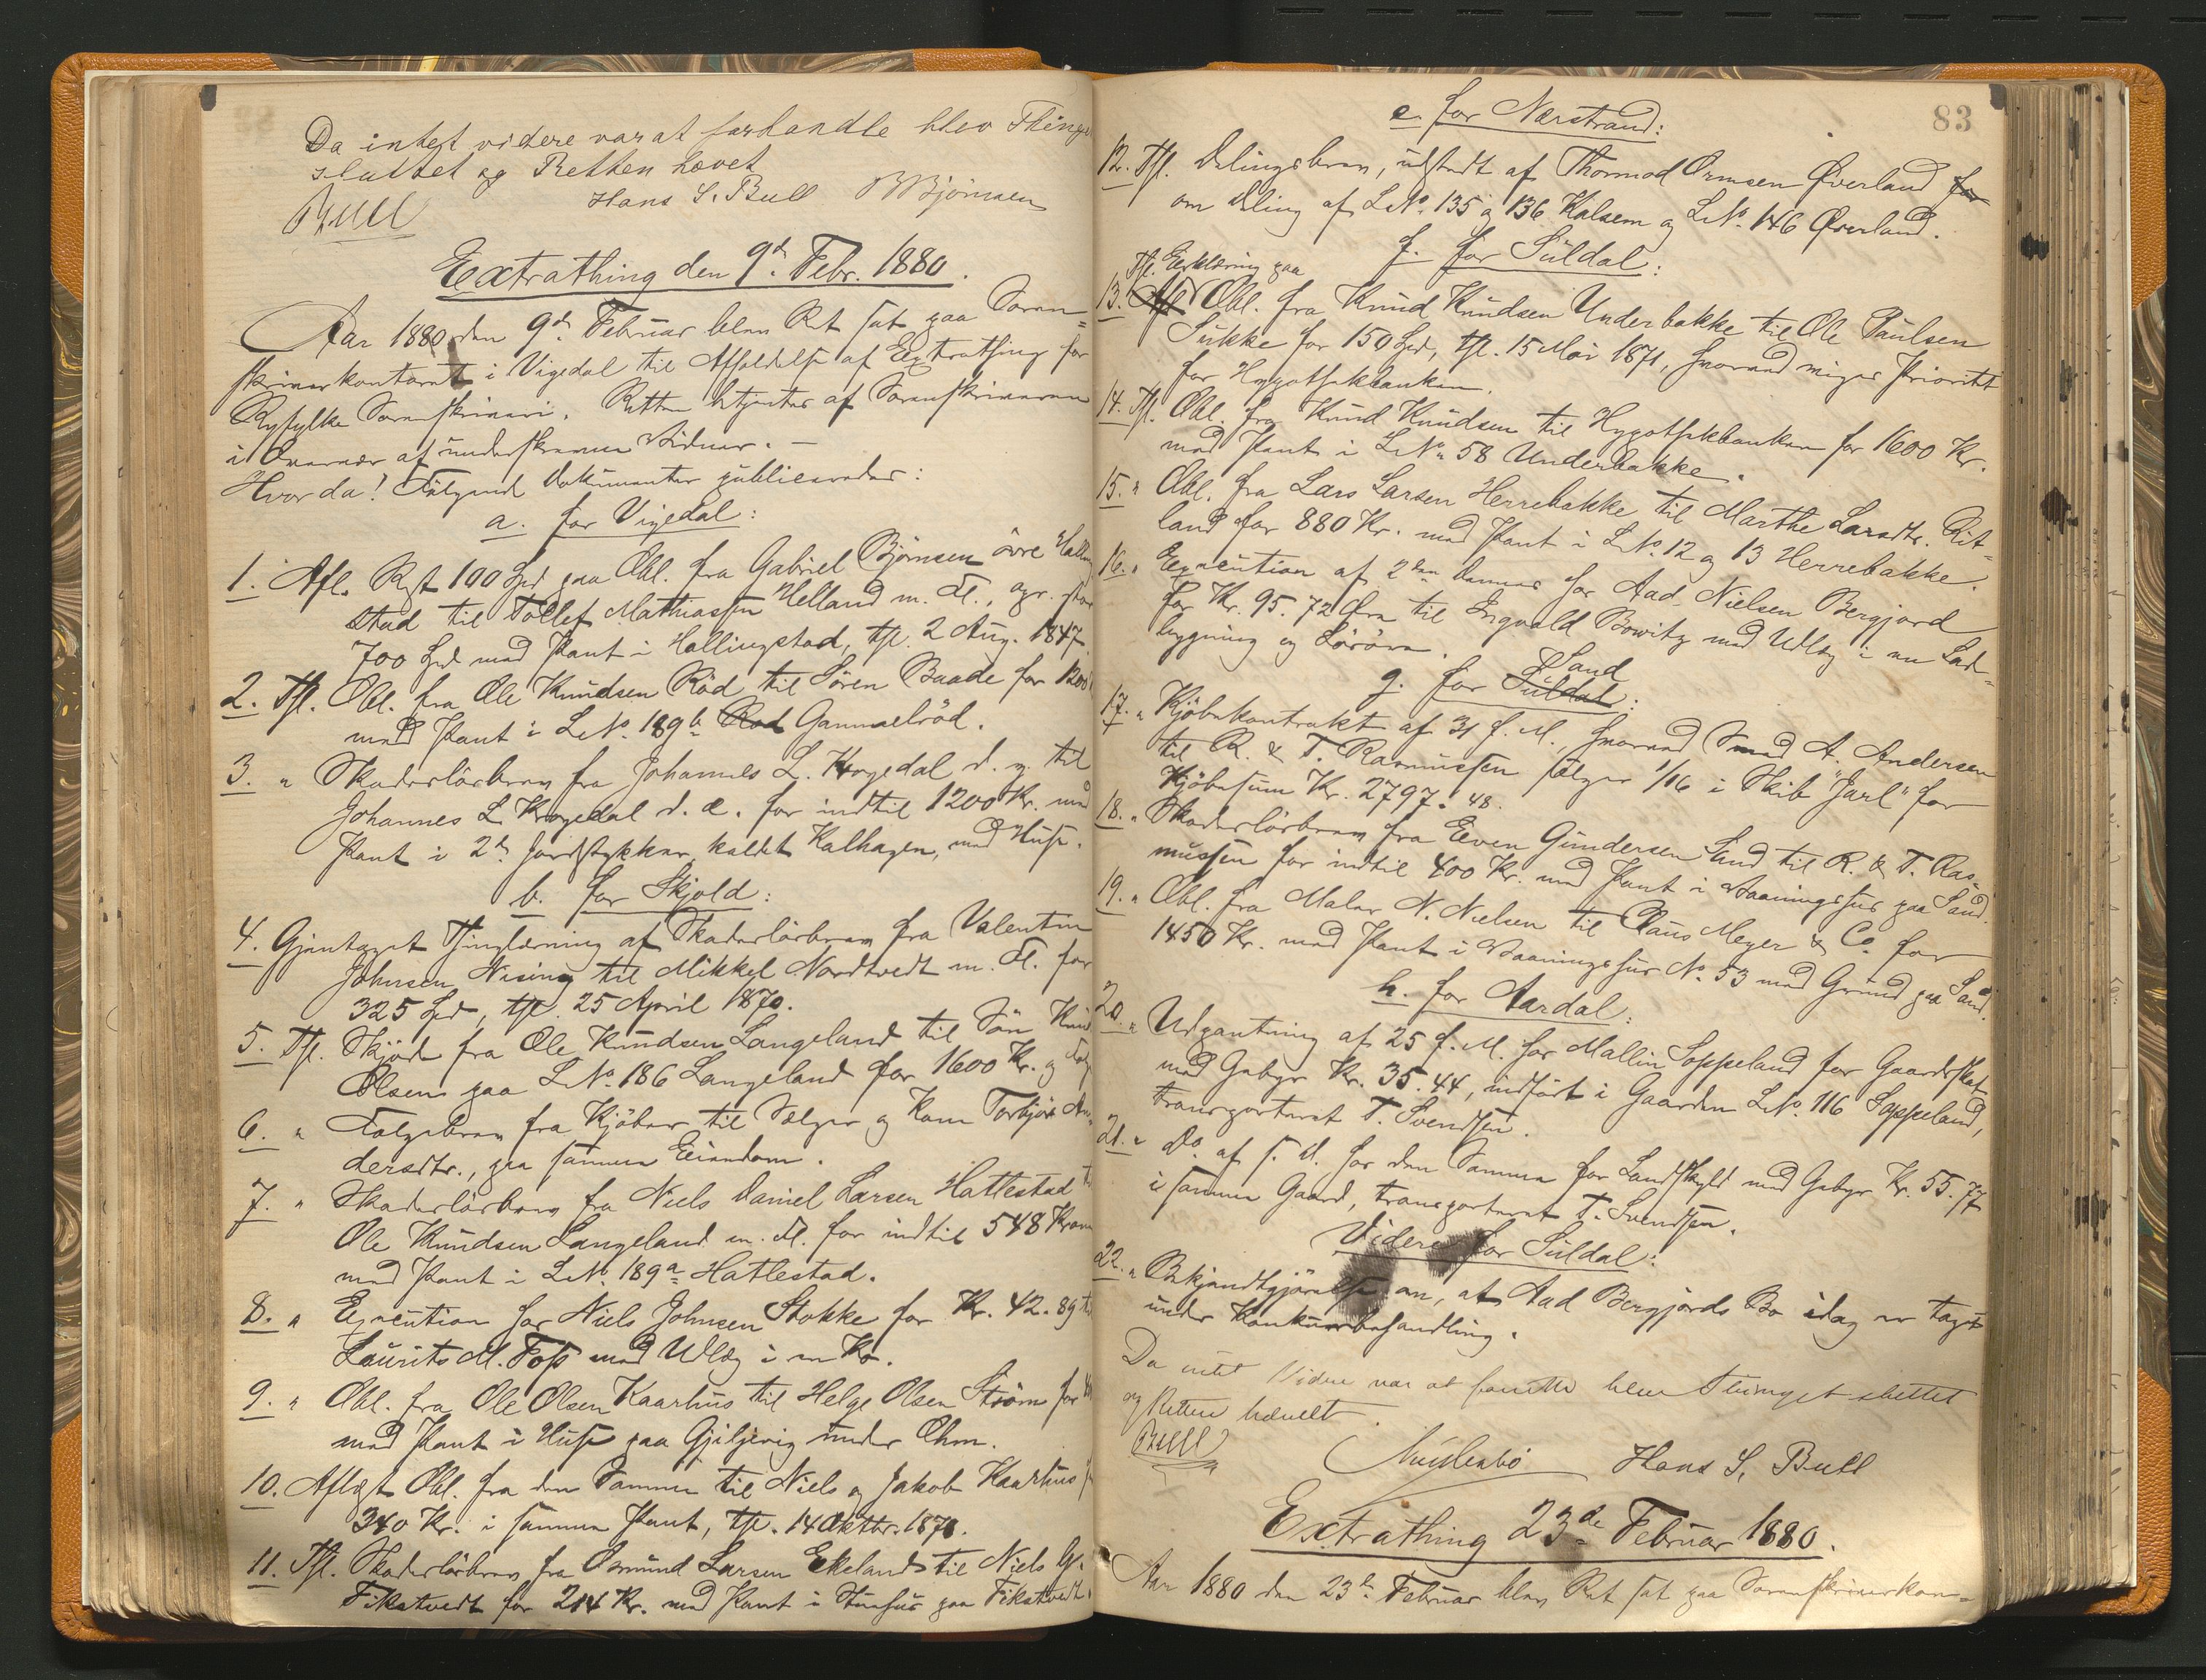 Da intet videre var at forhandle blev Thinge
sluttet og Retten hævet
Bull Hans S. Bull BBjörnsen
Extrathing den 9d. Febr. 1880.
Aar 1880 den 9d. Februar blev Ret sat paa Soren=
skriverkontoret i Vigedal til Afholdelse af Extrathing for
Ryfylke Sorenskriveri. Retten betjentes af Sorenskriveren
i Overvær af underskrevne Vidner. —
Hvor da! Følgende Dokumenter publiceredes:
a. for Vigedal:
1. Afl. Rest 100 Spd paa Obl. fra Gabriel Björnsen övre Halling
stad til Tollef Mathiassen Helland m. Fl., opr. stor
700 Spd med Pant i Hallingstad, tgl. 2 Aug. 1847.
2. Tgl. Obl. fra Ole Knudsen Röd til Sören Baade for 1200
med Pant i LNo. 189b Rød Gammelröd.
3. " Skadeslösbrev fra Johannes L. Krogedal d. y. til
Johannes L. Krogedal d. æ. for indtil 1200 Kr. med
Pant i 2de Jordstykker, kaldet Kalhagen, med Huse.
b. for Skjold:
4. Gjentaget Thinglæsning af Skadeslösbrev fra Valentin
Johnsen Nising til Mikkel Nordtvedt m. Fl. for
325 Spd, tgl. 25 April 1870.
5. Tgl. Skjöde fra Ole Knudsen Langeland til Sön Knud
Olsen paa LNo. 186 Langeland for 1600 Kr. og Folge
6. " Folgebrev fra Kjöber til Sælger og Kone Torbjör An
dersdtr., paa samme Eiendom.
7. " Skadeslösbrev fra Niels Daniel Larsen Hatlestad til
Ole Knudsen Langeland m. Fl. for indtil 548 Kroner
med Pant i LNo. 189a Hatlestad.
8. " Execution hos Niels Johnsen Stokke for Kr. 42.89 til
Laurits M. Foss med Udlæg i en Ko.
9. " Obl. fra Ole Olsen Kaarhus til Helge Olsen Ström for
med Pant i Huse paa Gjiljevig under Ohm.
10. Aflæst Obl. fra den Samme til Niels og Jakob Kaarhus
340 Kr. i samme Pant, tgl. 14 Oktbr. 1878.
11. Tgl. Skadeslösbrev fra Osmund Larsen Ekeland til Niels G.
Fikstvedt for 214 Kr. med Pant i Stuehus paa Fikstvedt.
83
e. for Nærstrand:
12. Tgl. Delingsbrev, udstedt af Thormod Ormsen Øverland for
om Deling af LNo. 135 og 136 Kalsem og LNo. 146 Øverland.
f. for Suldal:
Tgl. Erklæring paa
13. Afl Obl. fra Knud Knudsen Underbakke til Ole Paulsen
Sukke for 150 Spd, tgl. 15 Mai 1871, hvorved viges Prioritet
for Hypothekbanken.
14. Tgl. Obl. fra Knud Knudsen til Hypothekbanken for 1600 Kr.
med Pant i LNo 58 Underbakke.
15. " Obl. fra Lars Larsen Herrebakke til Marthe Larsdtr. Rit=
land for 880 Kr. med Pant i LNo. 12 og 13 Herrebakke.
16. " Execution af 2den Dennes hos Aad. Nielsen Bergjord
for Kr. 95.72 Öre til Ingvald Bowitz med Udlæg i en Lade=
bygning og Löröre.
Sand
g. for Suldal:
17. " Kjöbekontrakt af 31 f. M., hvorved Smed A. Andersen
til R. & T. Rasmussen sælger 1/16 i Skib "Jarl" for
Kjöbesum Kr. 2797.48.
18. " Skadeslösbrev fra Even Gundersen Sand til R. & T. Ras=
mussen for indtil 400 Kr. med Pant i Vaaningshus paa Sand.
19. " Obl. fra Maler N. Nielsen til Claus Meyer & Co. for
1450 Kr. med Pant i Vaaningshus No. 53 med Grund paa Sand.
h. for Aardal:
20. " Udpantning af 25 f. M. hos Mallin Soppeland for Gaardsskat
med Gebyr Kr. 35.44, indfört i Gaarden LNo. 116 Soppeland,
transporteret T. Svendsen.
21. " Do. af s. D. hos den Samme for Landskyld med Gebyr Kr. 55.77
i samme Gaard, transporteret T. Svendsen.
Videre for Suldal:
22. " Bekjendtgjörelse om, at Aad Bergjords Bo idag er taget
under Konkursbehandling.
Da intet Videre var at foretta blev Thinget sluttet
og Retten hævett.
Bull Hans S. Bull
Extrathing 23de Februar 1880.
Aar 1880 den 23de Februar blev Ret sat paa Sorenskriverkon=